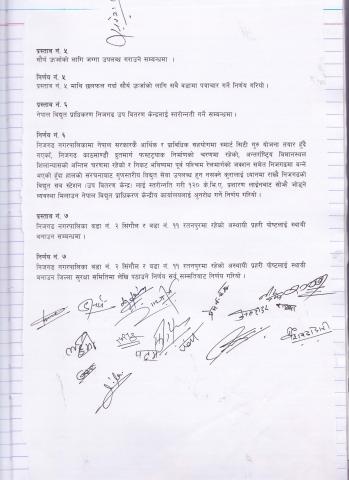 प्रस्ताव नं. ५
सौर्य ऊर्जाको लागि जग्गा उपलब्ध गराउने सम्बन्धमा ।
निर्णय नं. ५
प्रस्ताव नं. ५ माथि छलफल गर्दा सौर्य ऊर्जाको लागि सबै वडामा पत्राचार गर्ने निर्णय गरियो ।
प्रस्ताव नं. ६
नेपाल विद्युत प्राधिकरण निजगढ उप वितरण केन्द्रलाई स्तरोन्नती गर्ने सम्बन्धमा ।
निर्णय नं. ६
निजगढ नगरपालिकामा नेपाल सरकारकै आर्थिक र प्राविधिक सहयोगमा स्मार्ट सिटी गुरु योजना तयार हुँदै
गएका, निजगढ काठमाण्डौ द्रुतमार्ग फास्ट्रयाक निर्माणको चरणमा रहेको, अन्तर्राष्ट्रिय विमानस्थल
शिलान्यासको अन्तिम चरणमा रहेको र निकट भविष्यमा पूर्व पश्चिम रेलमार्गको जक्सन समेत निजगढमा बन्ने
भएकी हुँदा हालको संरचनाबाट गुणस्तरीय विद्युत सेवा उपलब्ध हुन नसक्ने कुरालाई ध्यानमा राखी निजगढको
विद्युत सब स्टेशन (उप वितरण केन्द्र) लाई स्तरोन्नति गरी १२० के.भि.ए. प्रशारण लाईनबाट सोझै जोड्ने
व्यवस्था मिलाउन नेपाल विद्युत प्राधिकरण केन्द्रीय कार्यालयलाई अनुरोध गर्ने निर्णय गरियो ।
प्रस्ताव नं. ७
निजगढ नगरपालिका वडा नं. २ सिंगौल र वडा नं. ११ रतनपुरमा रहेको अस्थायी प्रहरी पोष्टलाई स्थायी
बनाउन सम्बन्धमा ।
निर्णय नं. ७
निजगढ नगरपालिका वडा नं. २ सिंगौल र वडा नं. ११ रतनपुरमा रहेको अस्थायी प्रहरी पोष्टलाई स्थायी
बनाउन जिल्ला सुरक्षा समितिमा लेखि पठाउने निर्णय सर्व सम्मतिबाट निर्णय गरियो ।